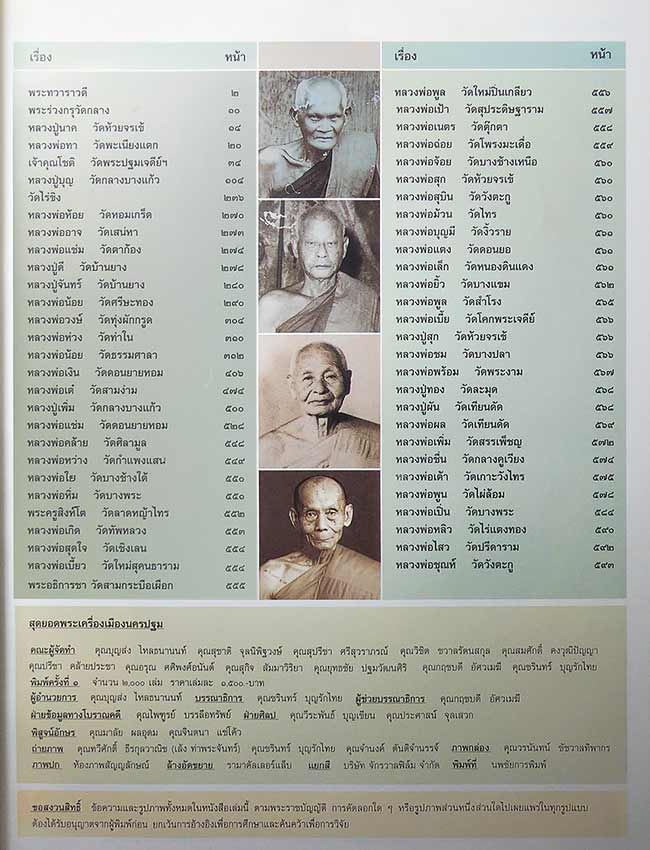 เรื่อง หน้า
พระทวาราวดี ๒
พระร่วงกรุวัดกลาง ๑๐
หลวงปู่นาค วัดห้วยจรเข้ ๑๔
หลวงพ่อทา วัดพะเนียงแตก ๒๐
เจ้าคุณโชติ วัดพระปฐมเจดีย์ฯ ๓๔
หลวงปู่บุญ วัดกลางบางแก้ว ๑๐๔
วัดไร่ขิง ๒๓๖
หลวงพ่อห้อย วัดหอมเกร็ด ๒๗๐
หลวงพ่ออาจ วัดเสน่หา ๒๗๓
หลวงพ่อแช่ม วัดตาก้อง ๒๗๔
หลวงปู่ดี วัดบ้านยาง ๒๗๘
หลวงปู่จันทร์ วัดบ้านยาง ๒๘๐
หลวงพ่อน้อย วัดศรีษะทอง ๒๙๐
หลวงพ่อวงษ์ วัดทุ่งผักกรูด ๓๐๔
หลวงพ่อห่วง วัดท่าใน ๓๑๐
หลวงพ่อน้อย วัดธรรมศาลา ๓๑๒
หลวงพ่อเงิน วัดดอนยายหอม ๔๐๖
หลวงพ่อเต๋ วัดสามง่าม ๔๗๔
หลวงปู่เพิ่ม วัดกลางบางแก้ว ๕๐๐
หลวงพ่อแช่ม วัดดอนยายหอม ๕๒๘
หลวงพ่อคล้าย วัดศิลามูล ๕๔๘
หลวงพ่อหว่าง วัดกำแพงแสน ๕๔๙
หลวงพ่อใย วัดบางช้างใต้ ๕๕๐
หลวงพ่อหิ่ม วัดบางพระ ๕๕๐
พระครูสิงห์โต วัดลาดหญ้าไทร ๕๕๒
หลวงพ่อเกิด วัดทัพหลวง ๕๕๓
หลวงพ่อสุดใจ วัดเชิงเลน ๕๕๔
หลวงพ่อเบี้ยว วัดใหม่สุคนธาราม ๕๕๔
พระอธิการชา วัดสามกระบือเผือก ๕๕๕
เรื่อง หน้า
หลวงพ่อพูล วัดใหม่ปิ่นเกลียว ๕๕๖
หลวงพ่อเป้า วัดสุประดิษฐาราม ๕๕๗
หลวงพ่อเนตร วัดตุ๊กตา ๕๕๘
หลวงพ่อฉ่อย วัดโพรงมะเดื่อ ๕๕๙
หลวงพ่อจ้อย วัดบางช้างเหนือ ๕๖๐
หลวงพ่อสุก วัดห้วยจรเข้ ๕๖๐
หลวงพ่อสุบิน วัดวังตะกู ๕๖๐
หลวงพ่อม้วน วัดไทร ๕๖๐
หลวงพ่อบุญมี วัดงิ้วราย ๕๖๐
หลวงพ่อแตง วัดดอนยอ ๕๖๐
หลวงพ่อเล็ก วัดหนองดินแดง ๕๖๐
หลวงพ่อยิ้ว วัดบางแขม ๕๖๒
หลวงพ่อพูล วัดสำโรง ๕๖๕
หลวงพ่อเบี้ย วัดโคกพระเจดีย์ ๕๖๖
หลวงปู่สุก วัดห้วยจรเข้ ๕๖๖
หลวงพ่อชม วัดบางปลา ๕๖๖
หลวงพ่อพร้อม วัดพระงาม ๕๖๗
หลวงปู่ทอง วัดละมุด ๕๖๘
หลวงปู่ผัน วัดเทียนดัด ๕๖๘
หลวงพ่อผล วัดเทียนดัด ๕๖๙
หลวงพ่อเพิ่ม วัดสรรเพ็ชญ ๕๗๒
หลวงพ่อชื่น วัดกลางคูเวียง ๕๗๔
หลวงพ่อเต้า วัดเกาะวังไทร ๕๗๕
หลวงพ่อพูน วัดไผ่ล้อม ๕๗๘
หลวงพ่อเปิ่น วัดบางพระ ๕๘๔
หลวงพ่อหลิว วัดไร่แตงทอง ๕๙๐
หลวงพ่อไสว วัดปรีดาราม ๕๙๒
หลวงพ่อชุณห์ วัดวังตะกู ๕๙๓
สุดยอดพระเครื่องเมืองนครปฐม
คณะผู้จัดทำ คุณบุญส่ง ไหลธนานนท์ คุณสุชาติ จุลนิพิฐวงษ์ คุณสุปรีชา ศรีสุวราภรณ์ คุณวิชิต ชวาลรัตนสกุล คุณสมศักดิ์ คงวุฒิปัญญา
คุณปรีชา คล้ายประชา คุณอรุณ ศศิพงศ์อนันต์ คุณสุกิจ สัมมาวิริยา คุณยุทธชัย ปฐมวัฒนศิริ คุณกฤชบดี อัศวเมฆี คุณขรินทร์ บุญรักไทย
พิมพ์ครั้งที่ ๑ จำนวน ๒,๐๐๐ เล่ม ราคาเล่มละ ๑,๕๐๐.-บาท
ผู้อำนวยการ คุณบุญส่ง ไหลธนานนท์ บรรณาธิการ คุณขรินทร์ บุญรักไทย ผู้ช่วยบรรณาธิการ คุณกฤชบดี อัศวเมฆี
ฝ่ายข้อมูลทางโบราณคดี คุณไพฑูรย์ บรรลือทรัพย์ ฝ่ายศิลป คุณวีระพันธ์ บุญเขียน คุณประศาสน์ จุลเสวก
พิสูจน์อักษร คุณมาลัย ผลอุดม คุณจินตนา แซ่โค้ว
ถ่ายภาพ คุณทวีศักดิ์ ธีรกุลวาณิช (เล้ง ท่าพระจันทร์) คุณขรินทร์ บุญรักไทย คุณจำนงค์ ตันติจำนรรจ์ ภาพกล่อง คุณวรนันทน์ ชัชวาลทิพากร
ภาพปก ห้องภาพสัญญลักษณ์ ล้างอัดขยาย รามาคัลเลอร์แล็บ แยกสี บริษัท จักรวาลฟิล์ม จำกัด พิมพ์ที่ นพชัยการพิมพ์
ขอสงวนสิทธิ์ ข้อความและรูปภาพทั้งหมดในหนังสือเล่มนี้ ตามพระราชบัญญัติ การคัดลอกใด ๆ หรือรูปภาพส่วนหนึ่งส่วนใดไปเผยแพร่ในทุกรูปแบบ
ต้องได้รับอนุญาตจากผู้พิมพ์ก่อน ยกเว้นการอ้างอิงเพื่อการศึกษาและค้นคว้าเพื่อการวิจัย